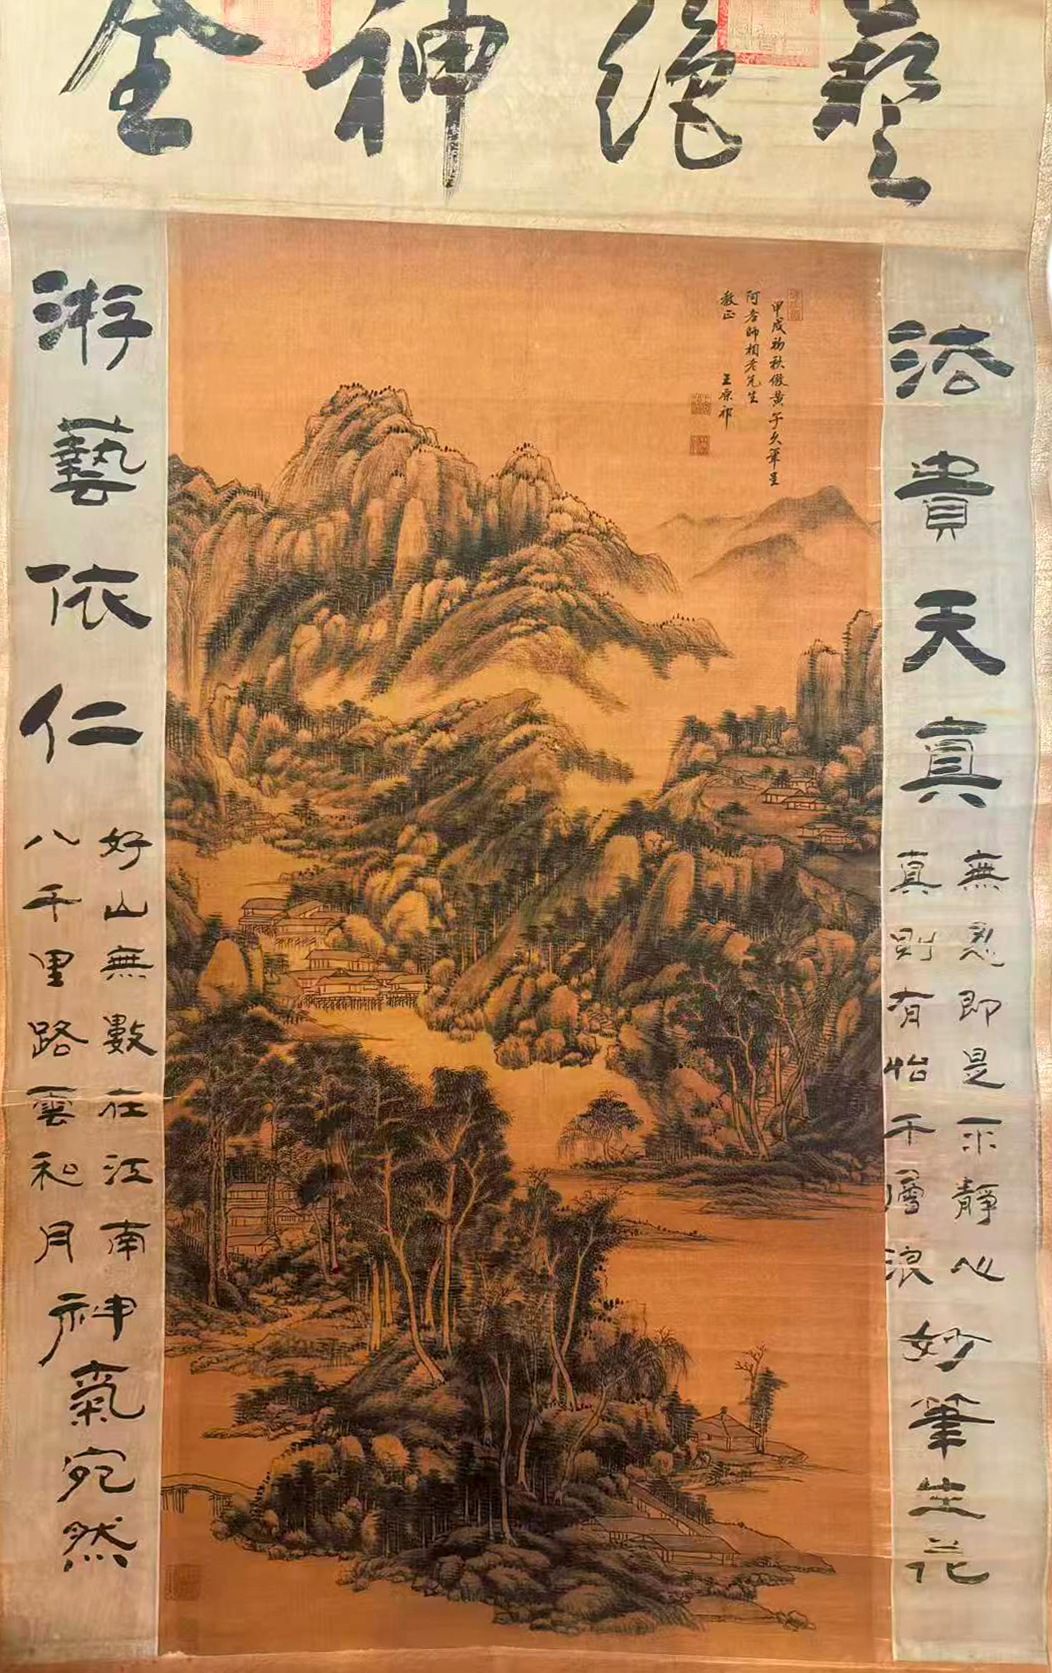 藝絕神全
甲戌初秋倣黃子久筆呈
阿老師相老先生
教正 王原祁
法貴天真
無即是靜心
真則有怡千層浪
妙筆生花
游藝依仁
好山無數在江南
八千里路雲和月
神氣宛然